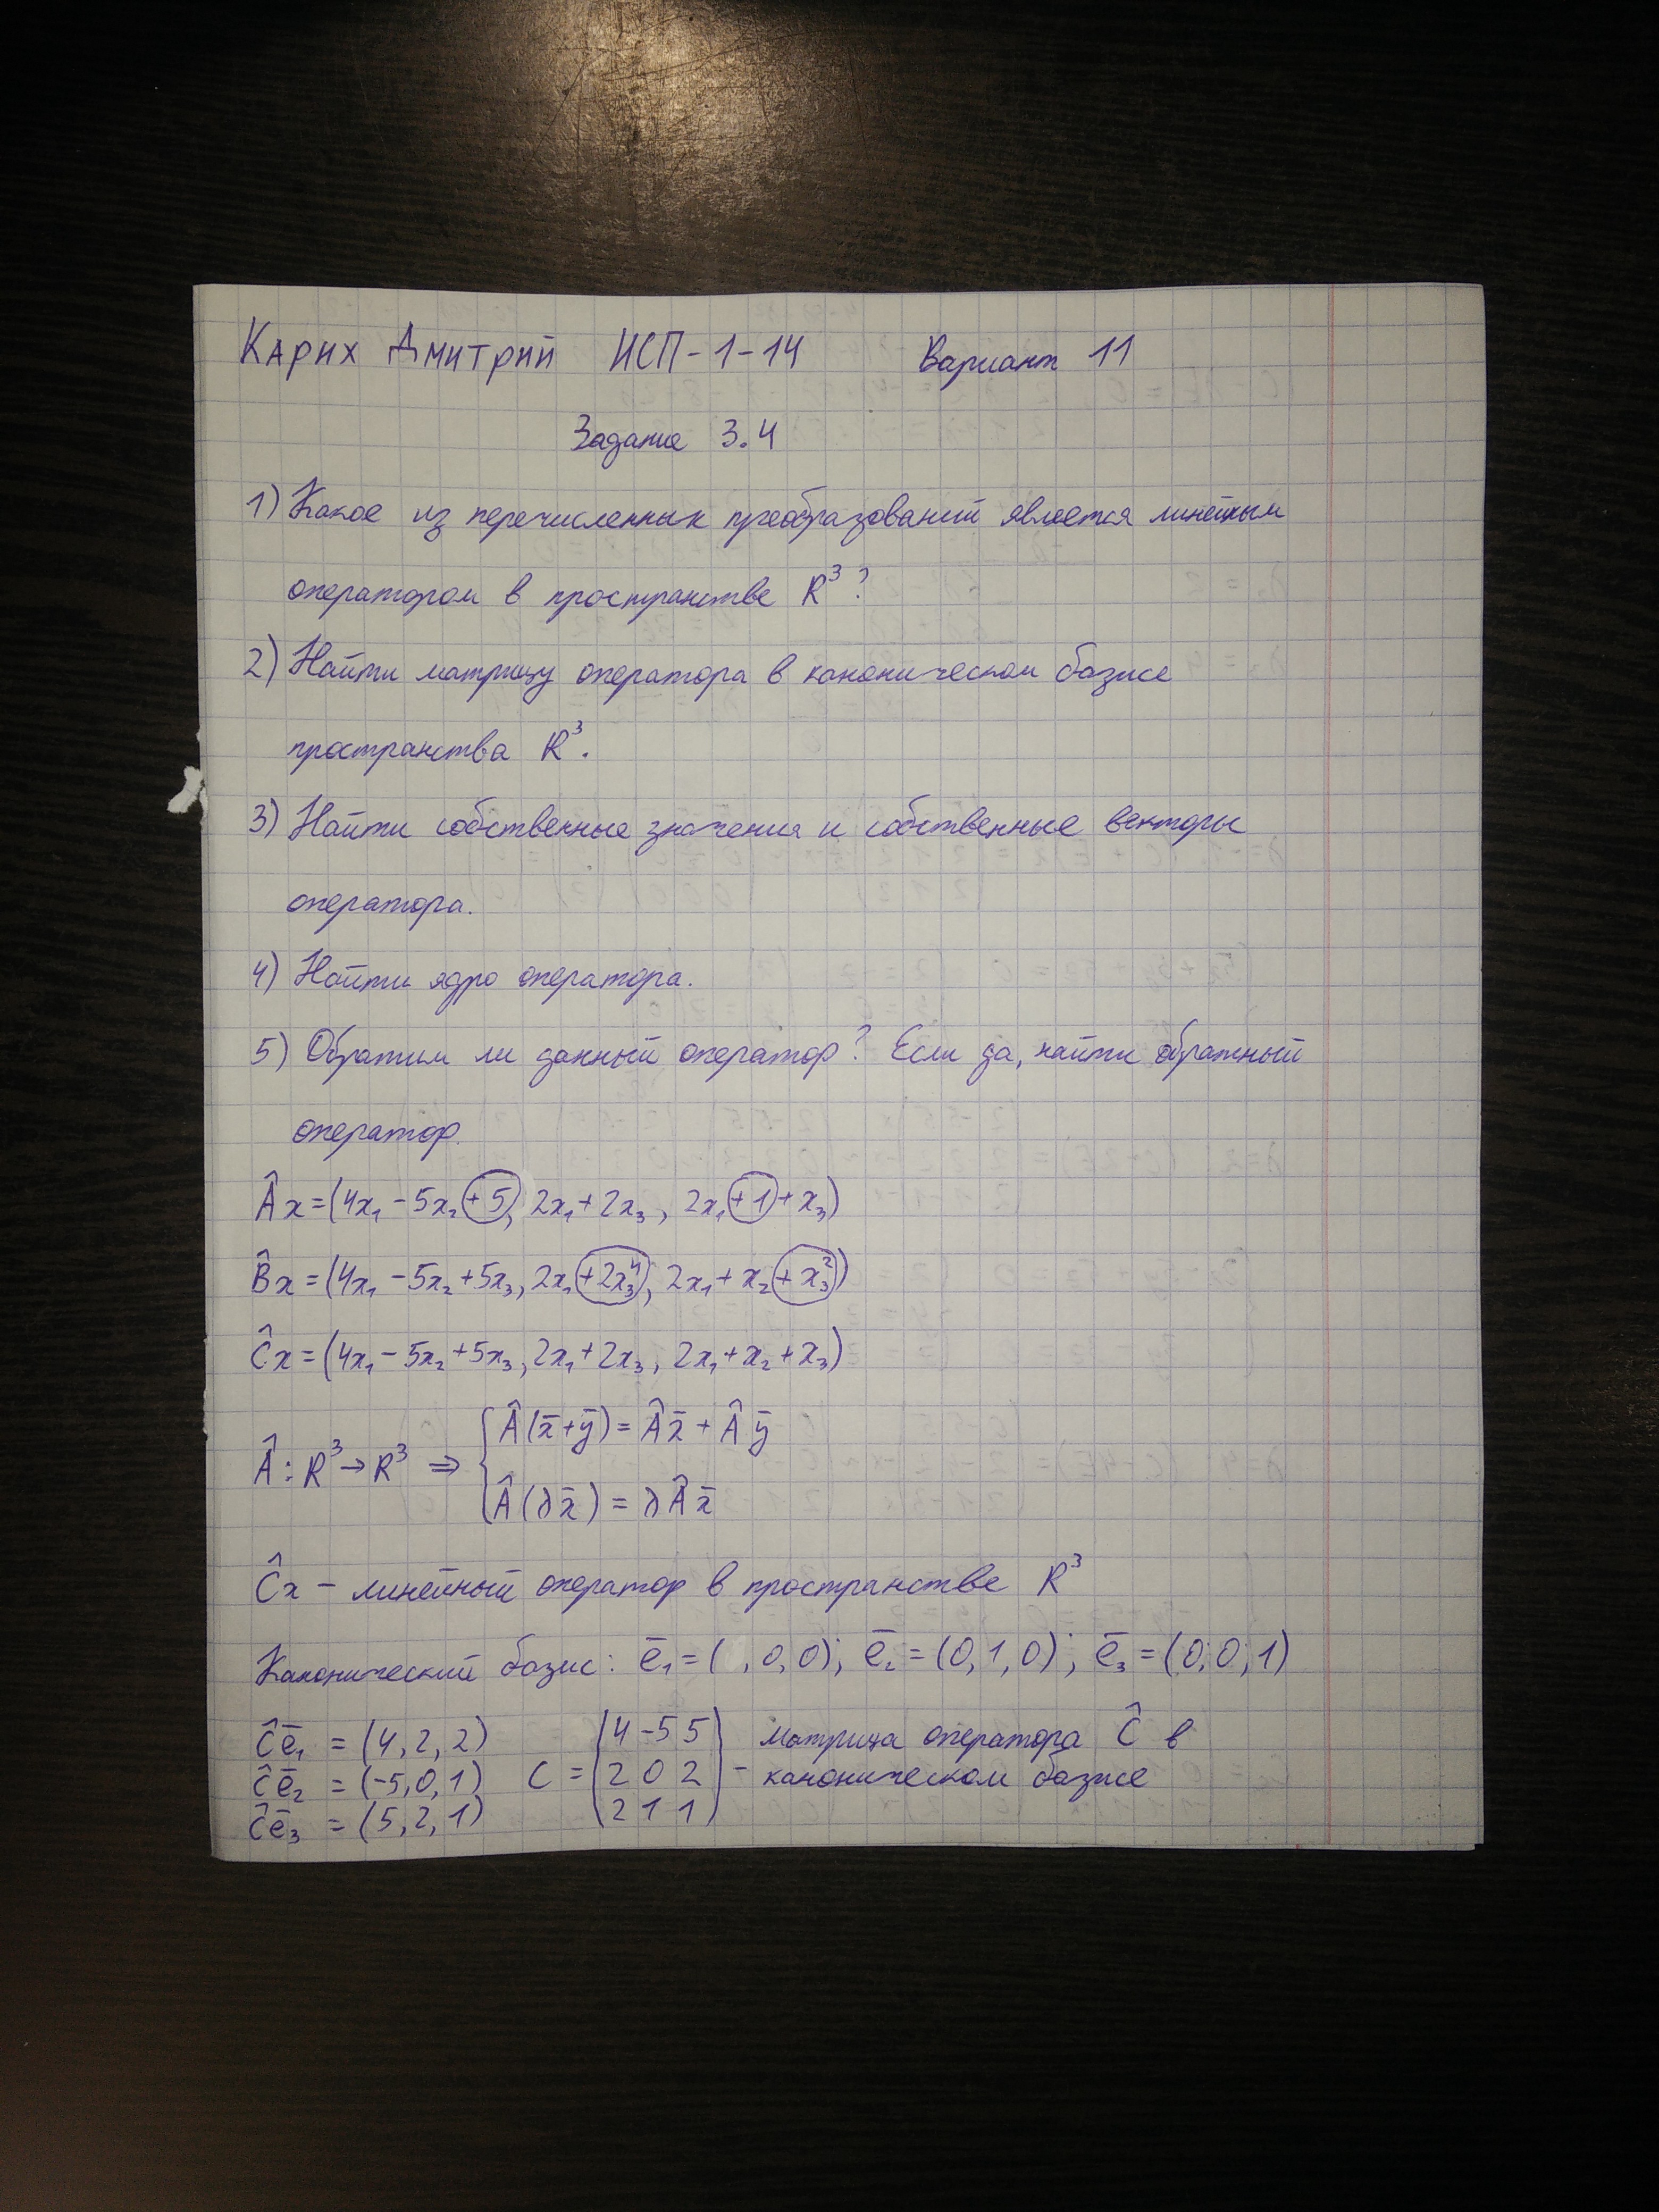 Карих Дмитрий ИСП-1-14 Вариант 11
Задание 3.4
1) Какое из перечисленных преобразований является линейным
оператором в пространстве R³?
2) Найти матрицу оператора в каноническом базисе
пространства R³.
3) Найти собственные значения и собственные векторы
оператора.
4) Найти ядро оператора.
5) Обратим ли данный оператор? Если да, найти обратный
оператор.
Âx=(4x₁-5x₂+5, 2x₁+2x₃, 2x₁+1+x₃)
B̂x=(4x₁-5x₂+5x₃, 2x₁+2x₃⁴, 2x₁+x₂+x₃²)
Ĉx=(4x₁-5x₂+5x₃, 2x₁+2x₃, 2x₁+x₂+x₃)
Â: R³→R³ ⇒ { Â(x̄+ȳ)=Âx̄+Âȳ
Â(λx̄)=λÂx̄
Ĉx – линейный оператор в пространстве R³
Канонический базис: ē₁=( ,0,0); ē₂=(0,1,0); ē₃=(0,0,1)
Ĉē₁ = (4,2,2) (4 -5 5) матрица оператора Ĉ в
Ĉē₂ = (-5,0,1) C = (2 0 2) – каноническом базисе
Ĉē₃ = (5,2,1) (2 1 1)